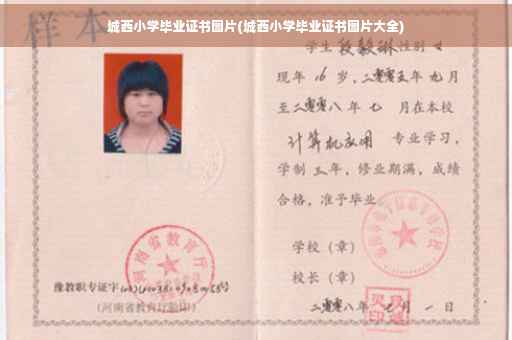 城西小学毕业证书图片(城西小学毕业证书图片大全)
样本
学生 段毅琳 性别 女
现年 16 岁，二零零五年 九 月
至二零零八年 七 月在本校
计算机应用 专业学习，
学制 三 年，修业期满，成绩
合格，准予毕业。
学校（章）
校长（章）
二零零八年 七 月 一 日
河南省教育厅
豫教职专证字
(河南省教育厅验印)